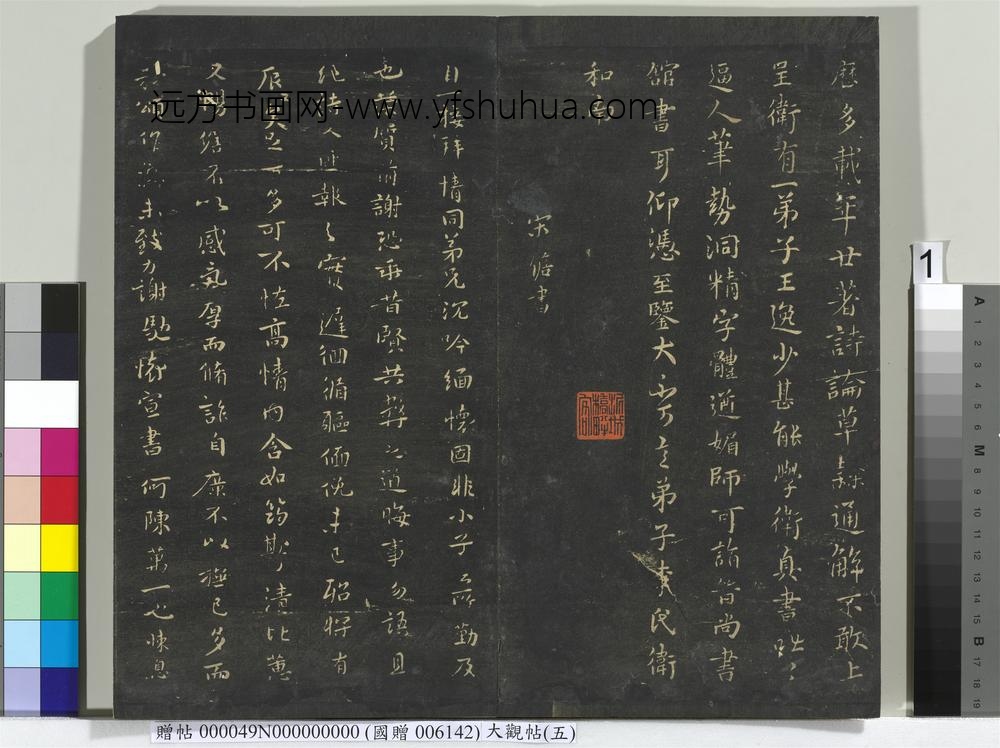 歷多載年廿著詩論草隸通解不敢上
呈衛有一弟子王逸少甚能學衛真書咄咄
逼人筆勢洞精字體遒媚師可詣晉尚書
館書耳仰憑至鑒大不可言弟子李氏衛
和南
宋儋書
接拜情同弟兄沉吟緬懷固非小子所勤及
也 謝恐乖昔賢共彝之道晦事勿語且
報之實遲徊循驅俛未已聆將有
可多可不怪高情內含如筠斯清比蕙
又 不以感氣厚而脩詐自廉不以 已多而
作 未致力謝馳懷宣書何陳萬一心悚息
远方书画网-www.yfshuhua.com
1
A 1 2 3 4 5 6 M 8 9 10 11 12 13 14 15 B 17 18 19
贈帖 000049N000000000 (國贈 006142) 大觀帖(五)